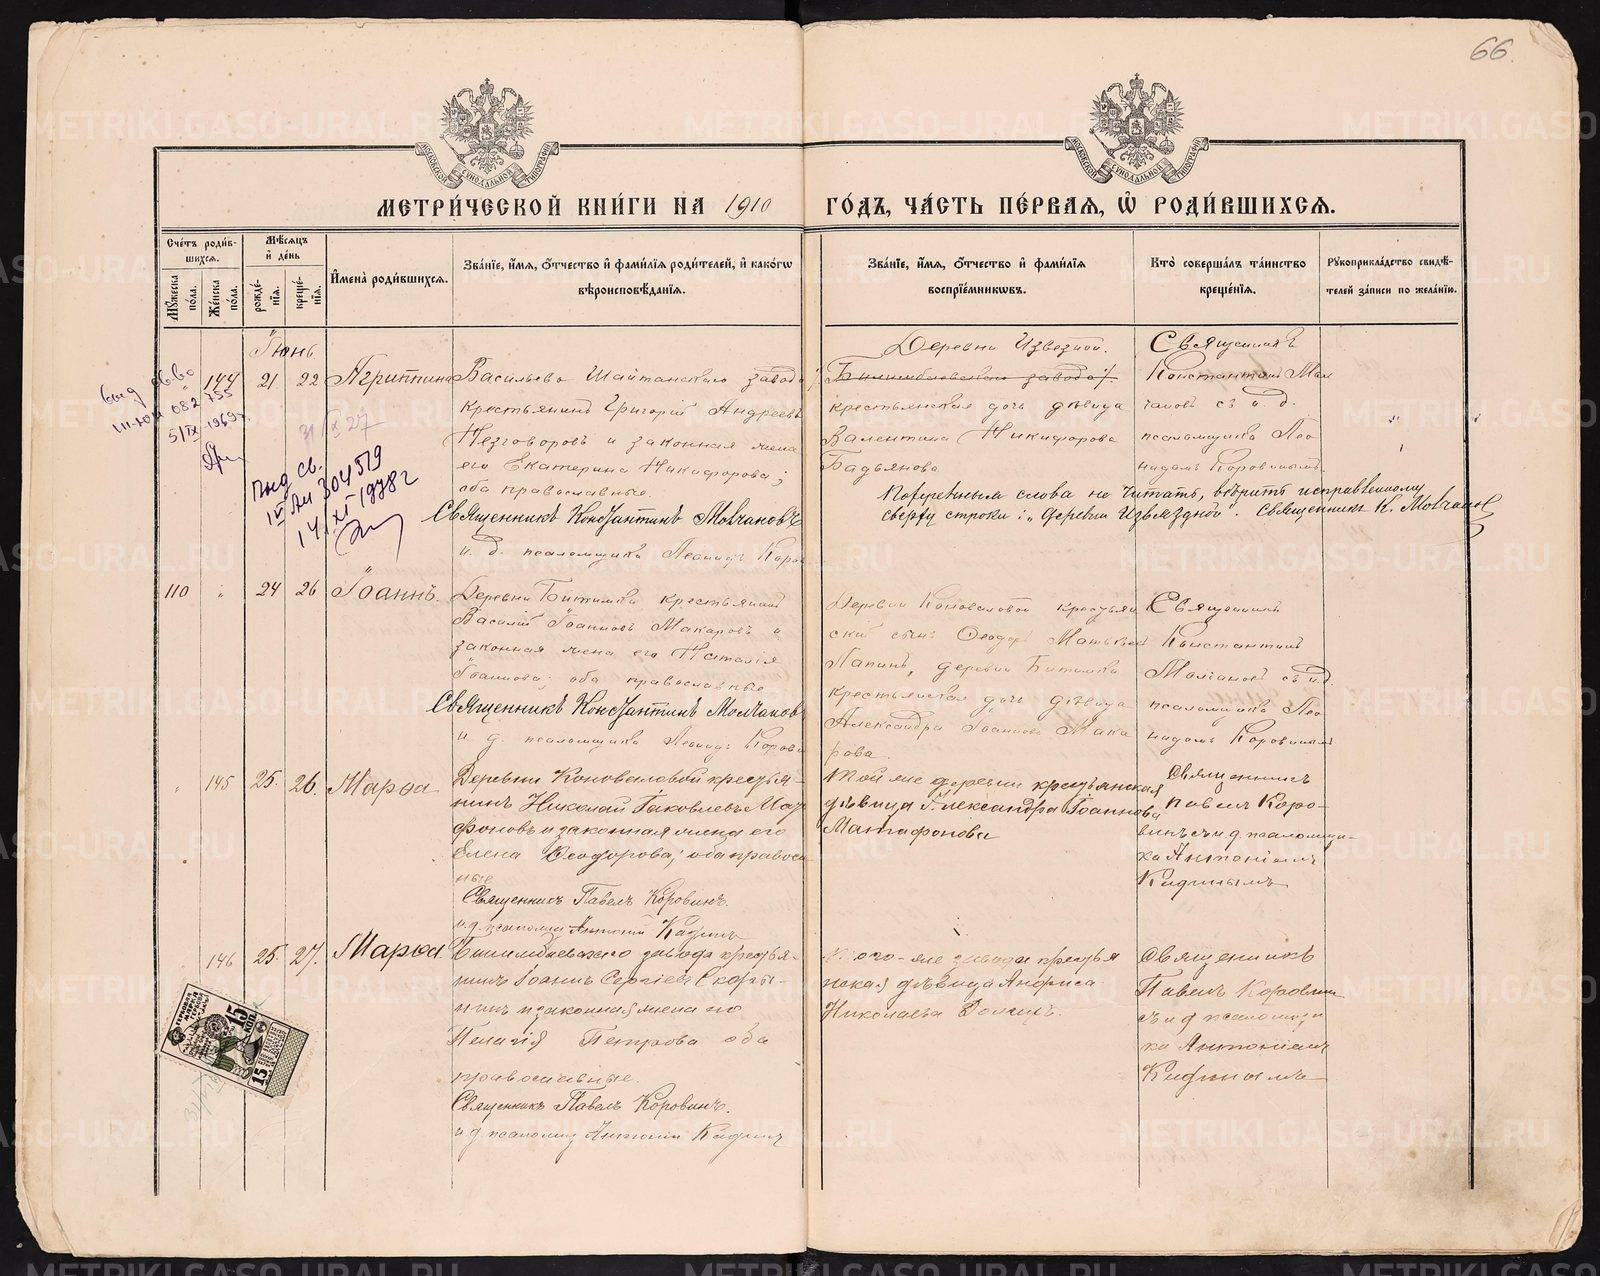 66.
МОСКОВСКОЙ СѴНОДАЛЬНОЙ ТИПОГРАФІИ
МОСКОВСКОЙ СѴНОДАЛЬНОЙ ТИПОГРАФІИ
МЕТРИ́ЧЕСКОЙ КНИ́ГИ НА 1910 ГО́ДЪ, ЧА́СТЬ ПЕ́РВАЯ, Ѽ РОДИ́ВШИХСЯ.
Сче́тъ роди́в-
шихся.
Мꙋ́жеска по́ла.
Же́нска по́ла.
Мѣ́сяцъ
и҆ де́нь
рожде́-нїя.
креще́-нїя.
И҆мена̀ роди́вшихся.
Зва́нїе, и҆́мя, ѻ҆́тчество и҆ фами́лїя роди́телей, и҆ како́гѡ
вѣроисповѣ́данїя.
Зва́нїе, и҆́мя, ѻ҆́тчество и҆ фами́лїя
воспрїе́мникѡвъ.
Кто̀ соверша́лъ та́инство
креще́нїя.
Рꙋкоприкла́дство свидѣ́-
телей за́писи по жела́нїю.
Іюнь
144 21 22 Агриппина
Васильево Шайтанскаго завода
крестьянинъ Григорій Андреевъ
Незговоровъ и законная жена
его Екатерина Никифорова;
оба православные.
Священникъ Константинъ Молчановъ
и. д. псаломщика Леонидъ Коро
Деревни Извезной.
Билимбаевскаго завода
крестьянская дочь дѣвица
Валентина Никифорова
Бадьянова
Священникъ
Константинъ Мол
чановъ съ и. д.
псаломщика Лео
нидомъ Коровинымъ
Почеркнутыя слова не читать, вѣрить исправленному
сверху строки: „Деревни Извѣздной". Священникъ К. Молчановъ
082 755
5/IX-1969г.
31/X 27
Выд св.
IV АИ 304519
14/XI 1978 г
110 24 26 Іоаннъ.
Деревни Битимки крестьянинъ
Василій Іоанновъ Макаровъ и
законная жена его Наталія
Іоаннова; оба православные
Священникъ Константинъ Молчановъ
и. д. псаломщика Леонидъ Корови
Деревни Коноваловой крестьян
скій сынъ Ѳеодоръ Матвѣевъ
Лапинъ, деревни Битимки
крестьянская дочь дѣвица
Александра Іоаннова Мака
рова.
Священникъ
Константинъ
Молчановъ съ и.д.
псаломщика Лео
нидомъ Коровинымъ
145 25. 26. Марѳа
Деревни Коноваловой крестья-
нинъ Николай Іаковлевъ Мата
фоновъ и законная жена его
Елена Ѳеодорова; оба правосл
ные
Священникъ Павелъ Коровинъ.
и.д. псаломщ Антоній Кадинъ
Той же деревни крестьянская
дѣвица Александра Іоаннова
Матафонова
Священникъ
Павелъ Коро-
винъ съ и д. псаломщи-
ка Антоніемъ
Кадинымъ
146 25. 27. Марѳа.
Билимбаевскаго завода крестья-
нинъ Іоаннъ Сергіевъ Скоры-
нинъ и законная жена его
Пелагія Петрова оба
православные.
Священникъ Павелъ Коровинъ.
и д псаломщ Антоній Кадинъ
Того-же завода крестья
нская дѣвица Анфиса
Николаева
Священникъ
Павелъ Коровинъ
съ и д псаломщи
ка Антоніемъ
Кадинымъ
15 КОП
15